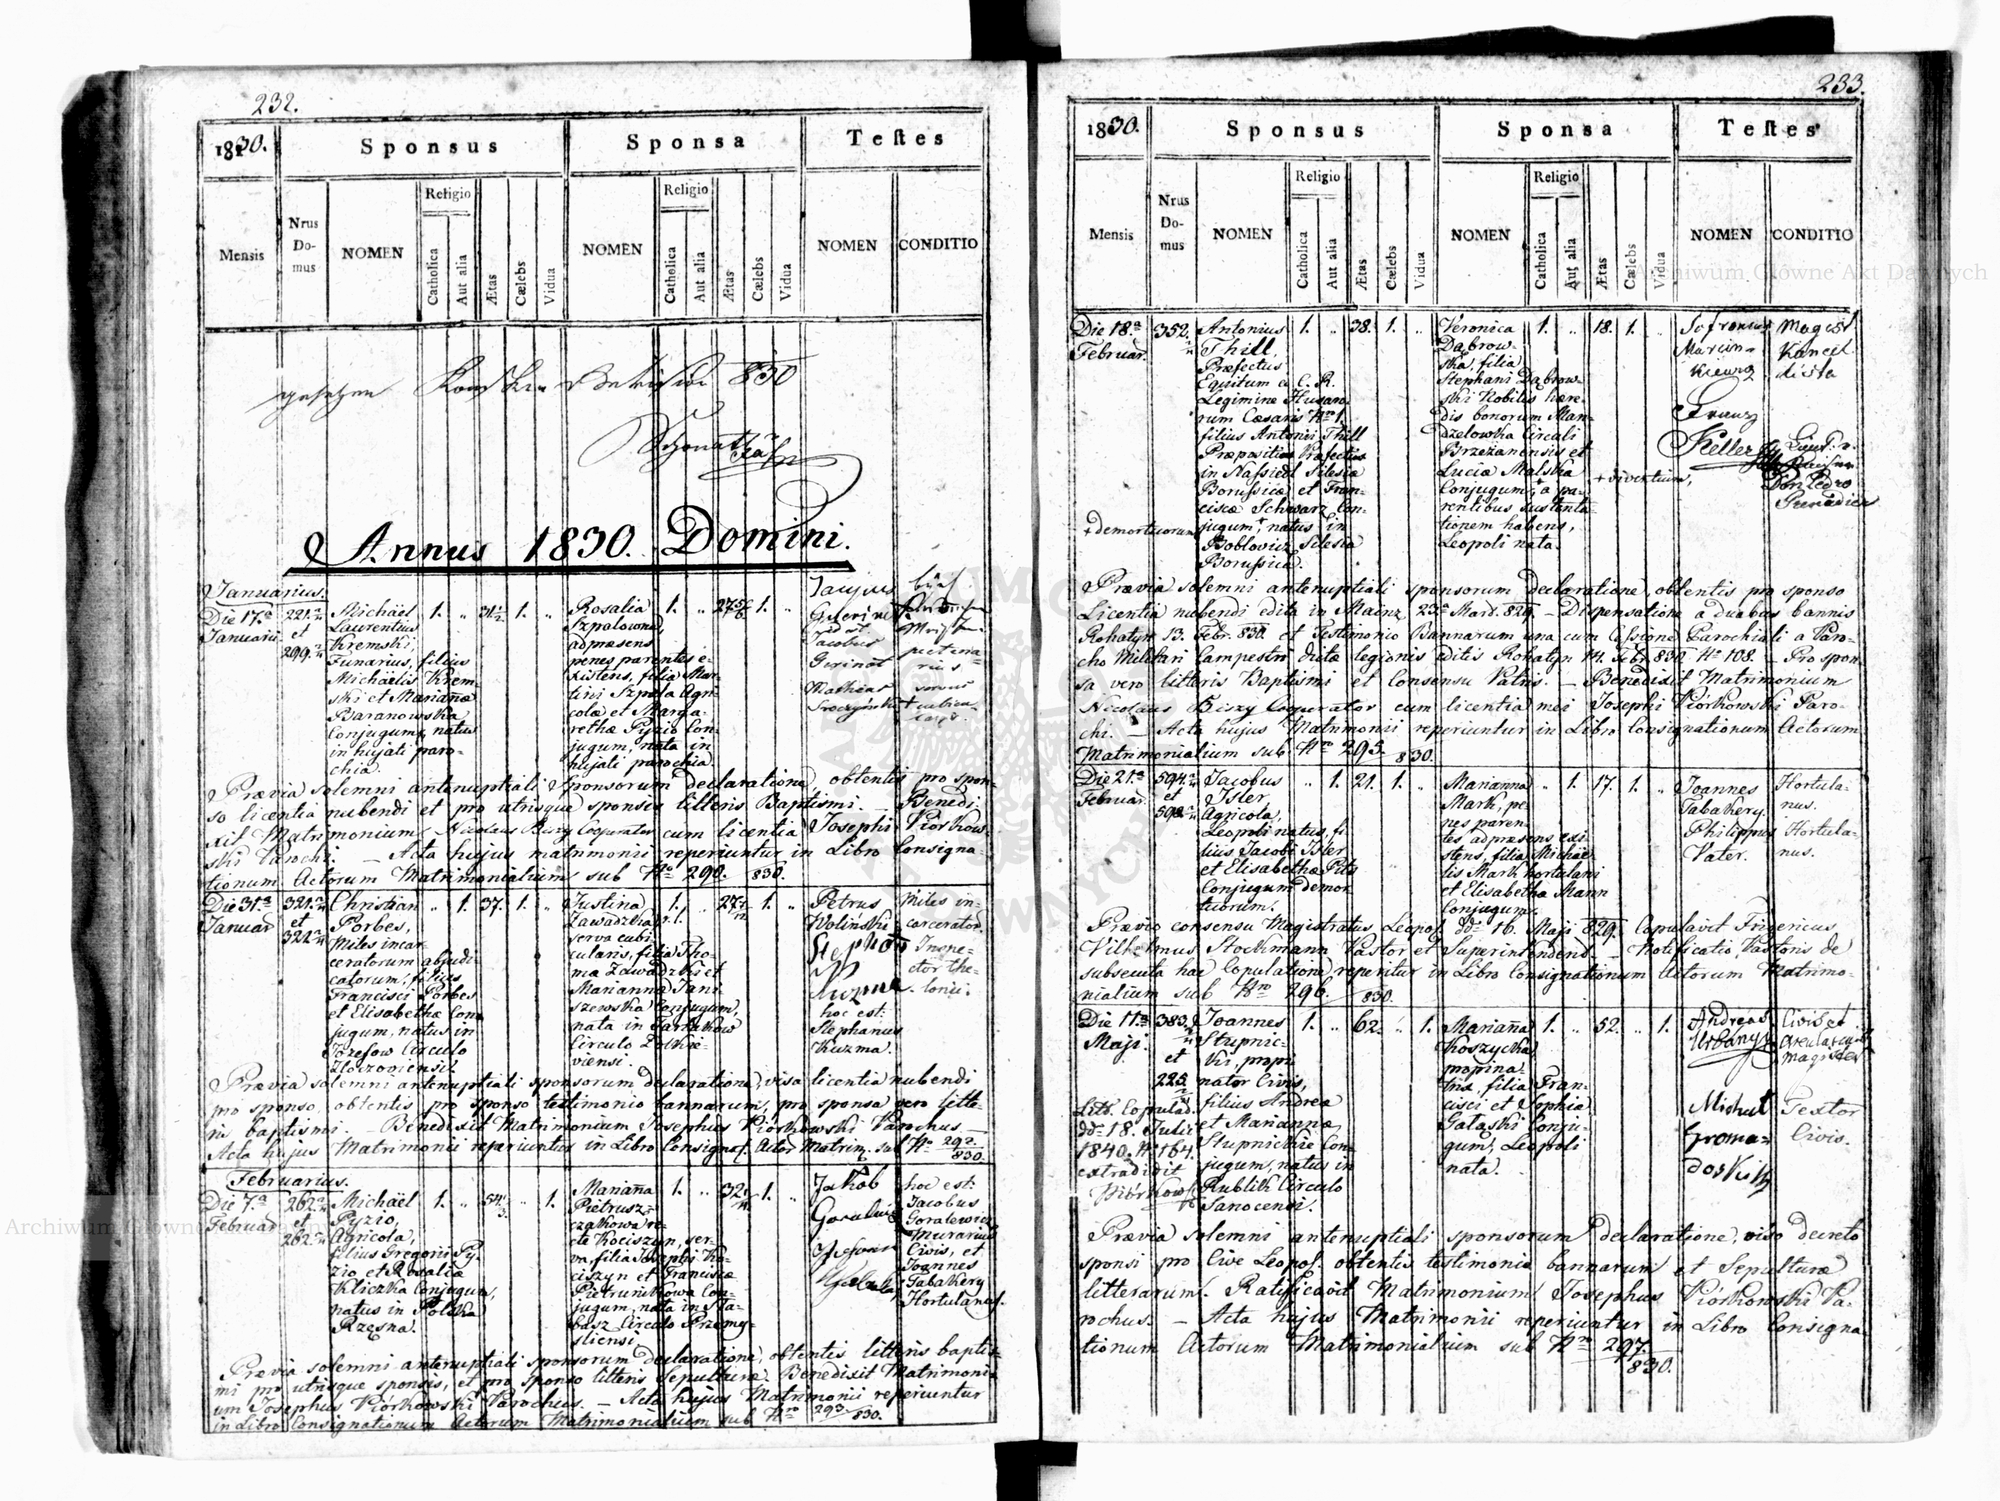 232.
1830.
Sponsus
Sponsa
Testes
Mensis
Nrus Do- mus
NOMEN
Religio
Catholica
Aut alia
Ætas
Cælebs
Vidua
NOMEN
Religio
Catholica
Aut alia
Ætas
Cælebs
Vidua
NOMEN
CONDITIO
830
Annus 1830. Domini.
Januarius.
Die 17.a
Januarii
221.
et
299.
Michaël
Laurentius
Kremski,
Funarius, filius
Michaelis Krem-
ski et Marianæ
Baranowska
Conjugum, natus
in hujati paro-
chia.
1. „ 31 1/2 1. „
Rosalia
Szpalowna,
ad præsens
penes parentes e-
xistens, filia Mar-
tini Szpala Agri-
colæ et Marga-
rethæ Pyzio Con-
jugum, nata in
hujati parochia.
1. „ 27 1. „
Jacobus
Mathias
Prævia solemni antenuptiali Sponsorum declaratione, obtentis pro spon-
so licentia nubendi et pro utrisque sponsis litteris Baptismi. — Benedi-
xit Matrimonium Nicolaus Biszy Cooperator cum licentia Josephi Piórkow-
ski Parochi. — Acta hujus matrimonii reperiuntur in Libro Consigna-
tionum Actorum Matrimonialium sub Nro 290. 830.
Die 31.a
Januar
321.
et
322.
Christian
Porbes,
Miles incar-
ceratorum abjudi-
catorum, filius
Francisci Porbes
et Elisabethæ Con-
jugum, natus in
Józefow Circulo
Złoczoviensi.
„ 1. 37. 1. „
Justina
Zawadzka,
serva cubi-
cularis, filia Tho-
mæ Zawadzki et
Mariannæ Jani-
szewska Conjugum,
nata in
Circulo Żołkie-
viensi.
1. „ 27 1. „
Petrus
Woliński
Stephan
Kuzma
hoc est:
Stephanus
Kuzma.
Miles in-
carcerator.
Inspe-
ctor the-
lonii.
Prævia solemni antenuptiali sponsorum declaratione, visa licentia nubendi
pro sponso, obtentis pro sponso testimonio bannarum, pro sponsa vero litte-
ris baptismi. — Benedixit Matrimonium Josephus Piórkowski Parochus. —
Acta hujus Matrimonii reperiuntur in Libro Consignat. Actor Matrim. sub Nro 292. 830.
Februarius.
Die 7.a
Februar
262.
et
262.
Michaël
Pyzio,
Agricola,
filius Gregorii Py-
zio et Rosaliæ
Kliczka Conjugum,
natus in Polska
Rzęsna.
1. „ 54 „ 1.
Marianna
Pietrusz-
czakowa re-
cte Kociszyn, ser-
va, filia Josephi Ko-
ciszyn et Franciscæ
Pietrunikowa Con-
jugum, nata in Sta-
basz Circulo Przemy-
sliensi.
1. „ 32. 1. „
Jakób
hoc est:
Jacobus
Goralewicz
Murarius
Civis, et
Joannes
Tabakery
Hortulanus.
Prævia solemni antenuptiali sponsorum declaratione, obtentis litteris baptis-
mi pro utrisque sponsis, et pro sponso litteris Sepulturæ. Benedixit Matrimoni-
um Josephus Piórkowski Parochus. — Acta hujus Matrimonii reperiuntur
in Libro Consignationum Actorum Matrimonialium sub Nro 293. 830.
233.
1830.
Sponsus
Sponsa
Testes
Mensis
Nrus Do- mus
NOMEN
Religio
Catholica
Aut alia
Ætas
Cælebs
Vidua
NOMEN
Religio
Catholica
Aut alia
Ætas
Cælebs
Vidua
NOMEN
CONDITIO
Die 18.a
Februar.
352.
Antonius
Thill,
Præfectus
Equitum e C. R.
Legimine Husaro-
rum Cæsaris Nro 1.
filius Antonii Thill
Præpositi Præfectus
in Nassiedl Silesiæ
Borussicæ et Fran-
ciscæ Schwarz Con-
jugum + natus in
Boblovicz Silesia
Borussica.
+ demortuorum
1. „ 38. 1. „
Veronica
Dąbrow-
ska, filia
Stephani Dąbrow-
ski Nobilis hære-
dis bonorum Man-
dzelowka Circuli
Brzeżanensis et
Lucia Malska
Conjugum, + a pa-
rentibus sustenta-
tionem habens,
Leopoli nata.
+ viventium,
1. „ 18. 1. „
Sofronius
Marcin-
kiewicz
Magist
Kancel-
lista
Franz
Keller
Prævia solemni antenuptiali sponsorum declaratione, obtentis pro sponso
Licentia nubendi edita in Mainz 23a Mart. 829. — Dispensatione a duabus bannis
Rohatyn 13. Febr. 830. et Testimonio Bannarum una cum Parochiali a Paro-
cho Militari Campestri dictæ legionis editis Rohatyn 14. Febr. 830 No 108. — Pro spon-
sa vero litteris Baptismi et Consensu Patris. — Benedixit Matrimonium
Nicolaus Biszy Cooperator cum licentia mei Josephi Piórkowski Paro-
chi. — Acta hujus Matrimonii reperiuntur in Libro Consignationum Actorum
Matrimonialium sub Nro 295. 830.
Die 21.a
Februar.
594.
et
598.
Jacobus
Isler
Agricola,
Leopoli natus, fi-
lius Jacobi Isler
et Elisabethæ Pitz
Conjugum demor-
tuorum.
„ 1. 21. 1. „
Marianna
Mark, pe-
nes paren-
tes ad præsens exi-
stens, filia Michaë-
lis Mark hortulani
et Elisabetha Mann
Conjugum.
„ 1. 17. 1. „
Joannes
Tabakery.
Philippus
Vater.
Hortula-
nus.
Hortula-
nus.
Prævio consensu Magistratus Leopol. ddo 16. Maji 829. Copulavit Frigericus
Vilhelmus Stockmann Pastor et Superintendens. — Notificatio Pastoris de
subsecuta hac Copulatione reperitur in Libro Consignationum Actorum Matrimo-
nialium sub Nro 296. 830.
Die 11.a
Maji.
383.
et
225.
Litt. Copulat.
ddo 18. Julii
1840. No 164.
extradidit
Piórkowski
Joannes
Stupnic-
ki, propi-
nator Civis,
filius Andreæ
et Mariannæ
Stupnickie Con-
jugum, natus in
Rublik Circulo
Sanocensi.
1. „ 62. „ 1.
Marianna
Koszycka
propina-
trix, filia Fran-
cisci et Sophia
Gałaski Conju-
gum, Leopoli
nata.
1. „ 52. „ 1.
Andreas
Urbanyi
Civis et
magister
Michał
Groma-
doski
Textor
Civis.
Prævia solemni antenuptiali sponsorum declaratione, viso decreto
sponsi pro Cive Leopol. obtentis testimonio bannarum et Sepulturæ
litterarum. Ratificavit Matrimonium Josephus Piórkowski Pa-
rochus. — Acta hujus Matrimonii reperiuntur in Libro Consigna-
tionum Actorum Matrimonialium sub Nro 297. 830.
Archiwum Główne Akt Dawnych
Archiwum Główne Akt Dawnych